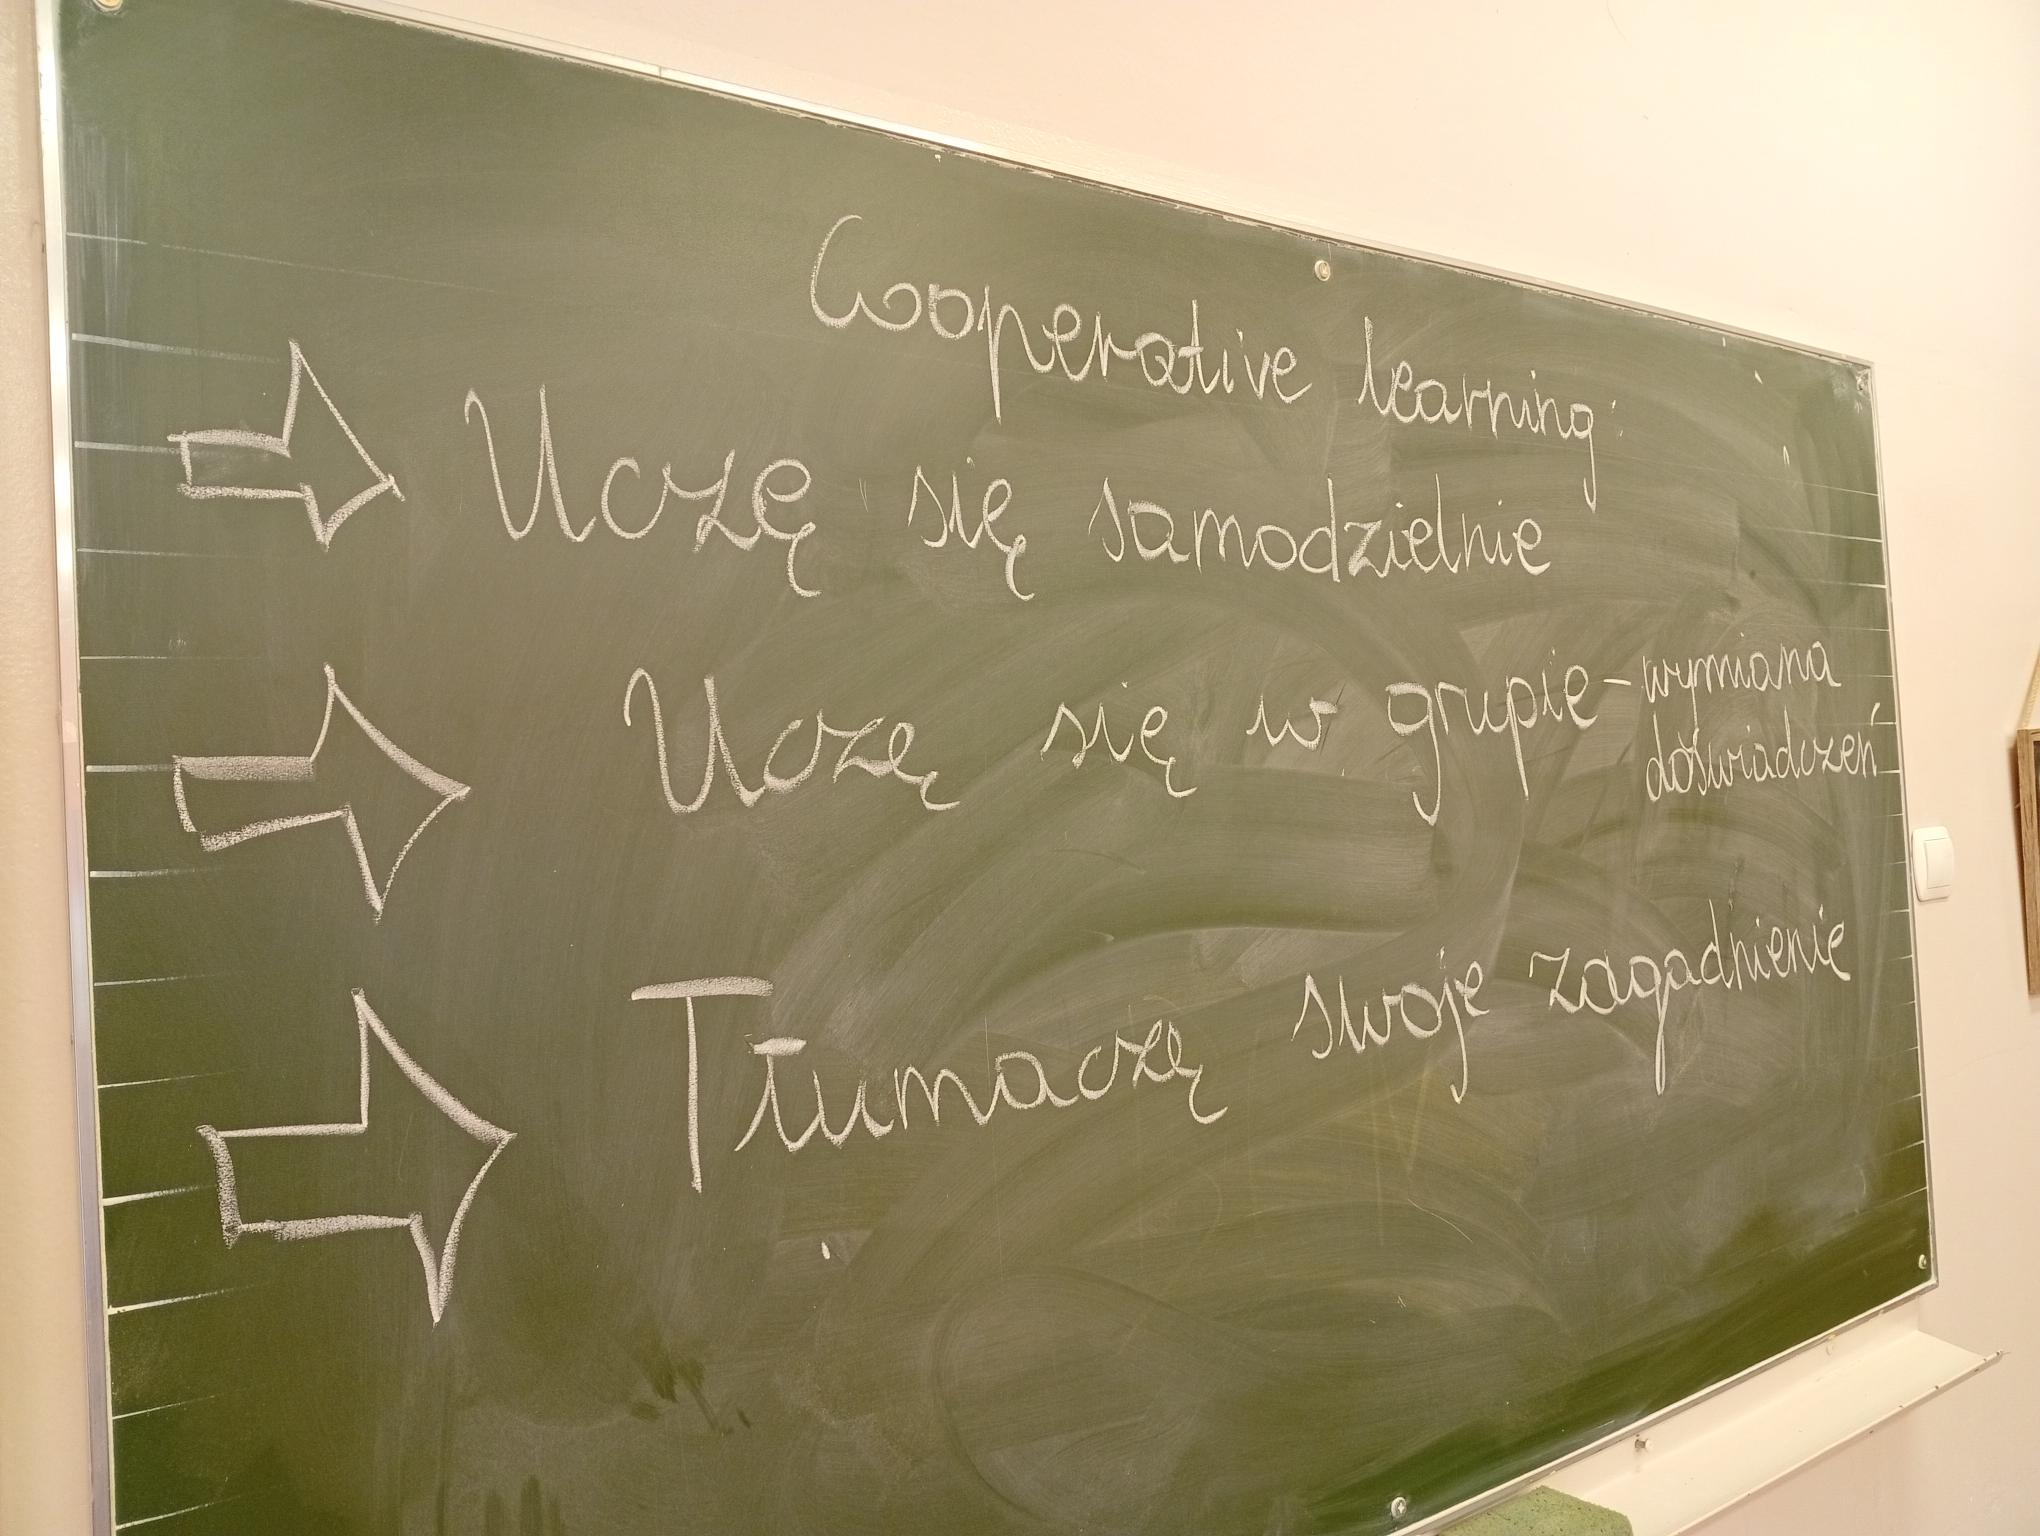 Cooperative learning:
Uczę się samodzielnie
Uczę się w grupie - wymiana
doświadczeń
Tłumaczę swoje zagadnienie